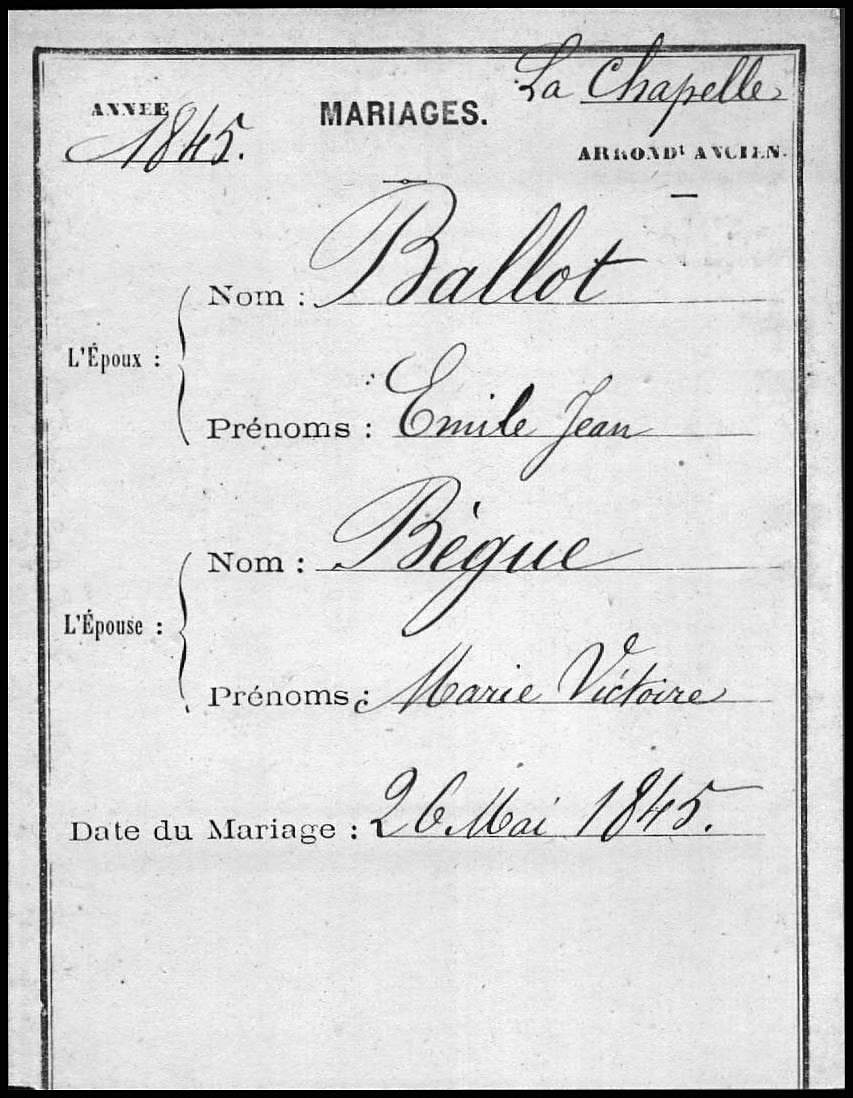 La Chapelle
ANNÉE
1845.
MARIAGES.
ARRONDt ANCIEN.
L'Époux :
Nom : Ballot
Prénoms : Emile Jean
L'Épouse :
Nom : Bègue
Prénoms : Marie Victoire
Date du Mariage : 26 Mai 1845.